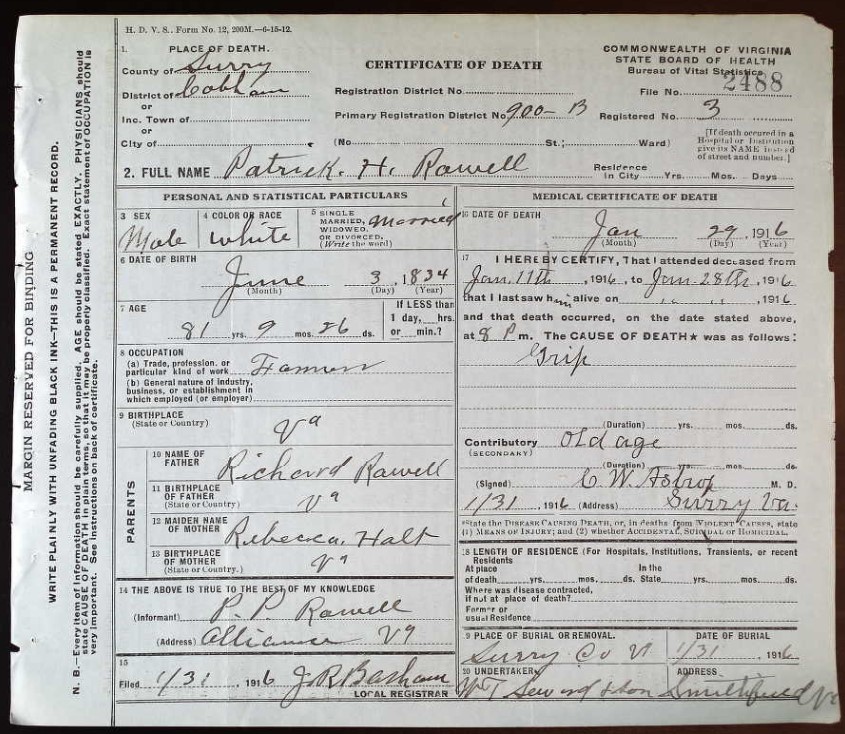 H. D. V. S., Form No. 12, 200M.—6-15-12.
MARGIN RESERVED FOR BINDING
WRITE PLAINLY WITH UNFADING BLACK INK—THIS IS A PERMANENT RECORD.
N. B.—Every item of information should be carefully supplied. AGE should be stated EXACTLY. PHYSICIANS should
state CAUSE OF DEATH in plain terms, so that it may be properly classified. Exact statement of OCCUPATION is
very important. See instructions on back of certificate.
1. PLACE OF DEATH.
County of Surry
District of Cobham
or
Inc. Town of
or
City of
CERTIFICATE OF DEATH
Registration District No.
Primary Registration District No. 900-B
(No. St.; Ward)
COMMONWEALTH OF VIRGINIA
STATE BOARD OF HEALTH
Bureau of Vital Statistics
File No. 2488
Registered No. 3
[If death occured in a
Hospital or Institution
give its NAME instead
of street and number.]
2. FULL NAME Patrick. H. Rowell
Residence
In City Yrs. Mos. Days
PERSONAL AND STATISTICAL PARTICULARS
3 SEX
Male
4 COLOR OR RACE
White
5 SINGLE
MARRIED,
WIDOWED,
OR DIVORCED.
(Write the word)
Married
6 DATE OF BIRTH
June 3, 1834
(Month) (Day) (Year)
7 AGE
81 yrs. 9 mos. 26 ds.
If LESS than
1 day, hrs.
or min.?
8 OCCUPATION
(a) Trade, profession, or
particular kind of work Farmer
(b) General nature of industry,
business, or establishment in
which employed (or employer)
9 BIRTHPLACE
(State or Country)
Va
PARENTS
10 NAME OF
FATHER Richard Rowell
11 BIRTHPLACE
OF FATHER
(State or Country) Va
12 MAIDEN NAME
OF MOTHER Rebecca. Holt
13 BIRTHPLACE
OF MOTHER
(State or Country.) Va
14 THE ABOVE IS TRUE TO THE BEST OF MY KNOWLEDGE
(Informant) P. P. Rowell
(Address) Alliance Va
15
Filed 1/31 1916 J R Barham
LOCAL REGISTRAR
MEDICAL CERTIFICATE OF DEATH
16 DATE OF DEATH
Jan 29, 1916
(Month) (Day) (Year)
17 I HEREBY CERTIFY, That I attended deceased from
Jan. 11th, 1916, to Jan. 28th, 1916
that I last saw him alive on , 1916
and that death occurred, on the date stated above,
at 8 P m. The CAUSE OF DEATH★ was as follows:
Grip
(Duration) yrs. mos. ds.
Contributory Old age
(SECONDARY)
(Duration) yrs. mos. ds.
(Signed) C. W. Astrop M. D.
1/31, 1916 (Address) Surry Va.
*State the DISEASE CAUSING DEATH, or, in deaths from VIOLENT CAUSES, state
(1) MEANS OF INJURY; and (2) whether ACCIDENTAL, SUICIDAL or HOMICIDAL.
18 LENGTH OF RESIDENCE (For Hospitals, Institutions, Transients, or recent
Residents
At place In the
of death yrs. mos. ds. State yrs. mos. ds.
Where was disease contracted,
if not at place of death?
Former or
usual Residence
19 PLACE OF BURIAL OR REMOVAL. DATE OF BURIAL
Surry Co V 1/31, 1916
20 UNDERTAKER ADDRESS
W T Seward & Son Smithfield Va